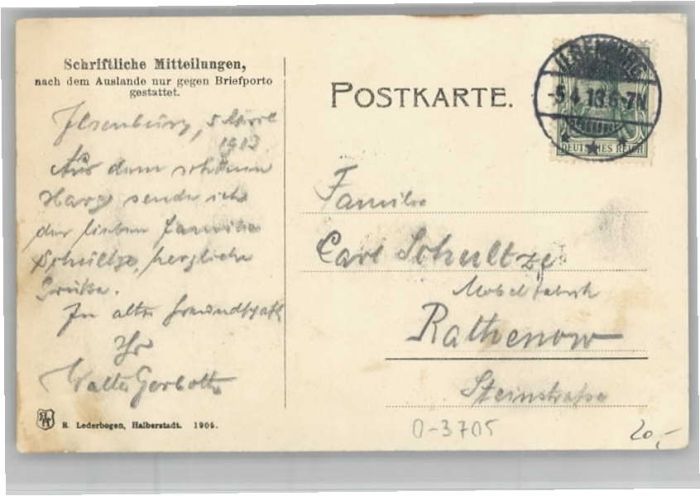 Schriftliche Mitteilungen,
nach dem Auslande nur gegen Briefporto
gestattet.
POSTKARTE.
ILSENBURG
-5.4.13.6-7N
(HARZ)
DEUTSCHES REICH
Ilsenburg, 5 April
1913
Aus dem schönen
Harz sende ich
der lieben Familie
Schultze, herzliche
Grüße.
In alter Freundschaft
Ihr
Walter Gerbotte
Familie
Carl Schultze
Möbelfabrik
Rathenow
Steinstraße
R. Lederbogen, Halberstadt. 1905.
0-3705
20,-